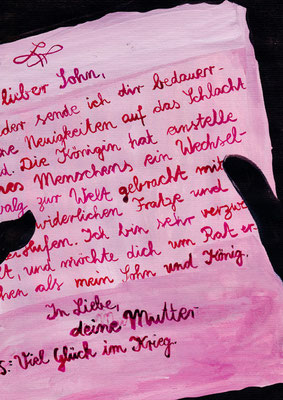 lieber Sohn,
der sende ich dir bedauerr-
ne Neuigkeiten auf das Schlacht
d. Die Königin hat anstelle
nes Menschens ein Wechsel-
balg zur Welt gebracht mit
widerlichen Fratze und
Hufen. Ich bin sehr verzw
lt, und möchte dich um Rat er-
hen als mein Sohn und König.
In Liebe,
deine Mutter
S: Viel Glück im Krieg.